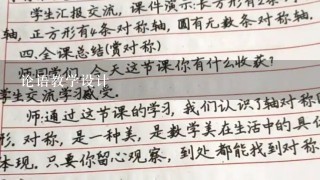 学生汇报交流,课件演示:长方形有2条
轴,正方形有4条对称轴,圆有无数条对称轴.
四.全课总结(赏对称)
今天这节课你有什么收获?
论语教学设计
学生交流学习感受.
师:通过这节课的学习,我们认识了轴对称
形.对称,是一种美,是数学美在生活中的具
体现.只要你留心观察,到处都能找到对称